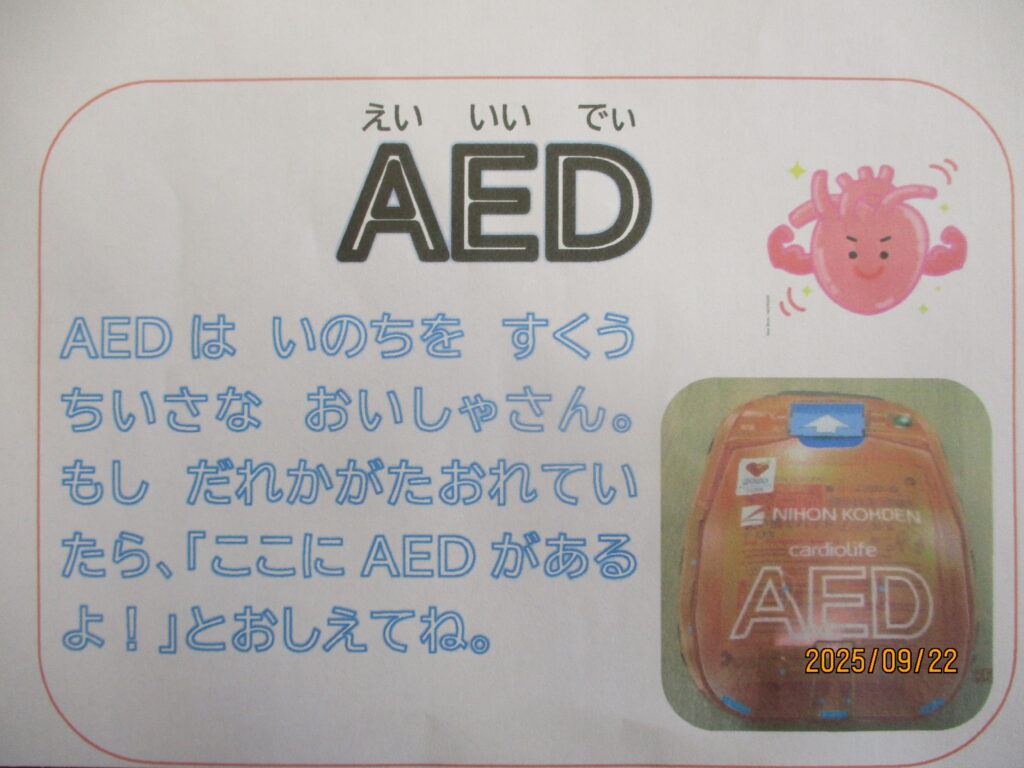 えい いい でぃ
AED
AED は いのちを すくう
ちいさな おいしゃさん。
もし だれかがたおれてい
たら、「ここに AED がある
よ！」とおしえてね。
NIHON KOHDEN
cardiolife
AED
2025/09/22